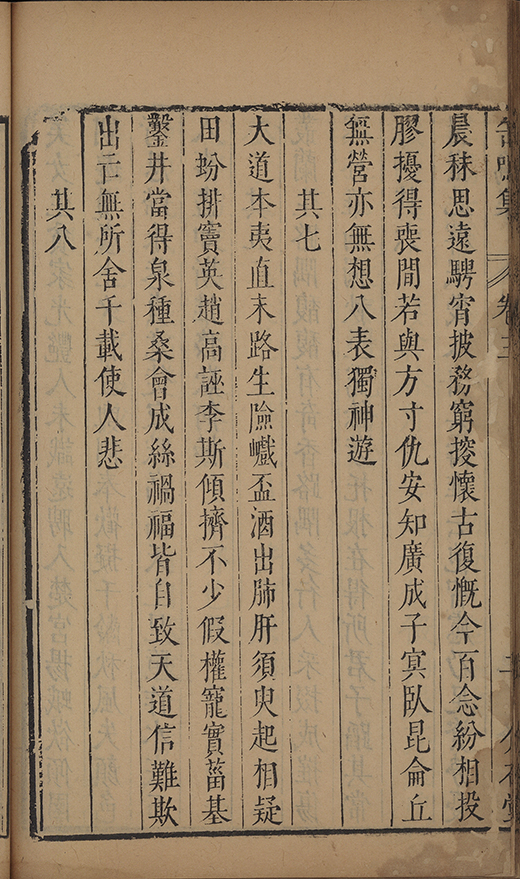 卷三
晨秣思遠騁宵披務窮搜懷古復慨今百念紛相投
膠擾得喪閒若與方寸仇安知廣成子冥臥昆侖丘
無營亦無想八表獨神遊
其七
大道本夷直末路生險巇盃酒出肺肝須臾起相疑
田蚡排竇英趙高誣李斯傾擠不少假權寵實菑基
鑿井當得泉種桑會成絲禍福皆自致天道信難欺
出亡無所舍千載使人悲
其八